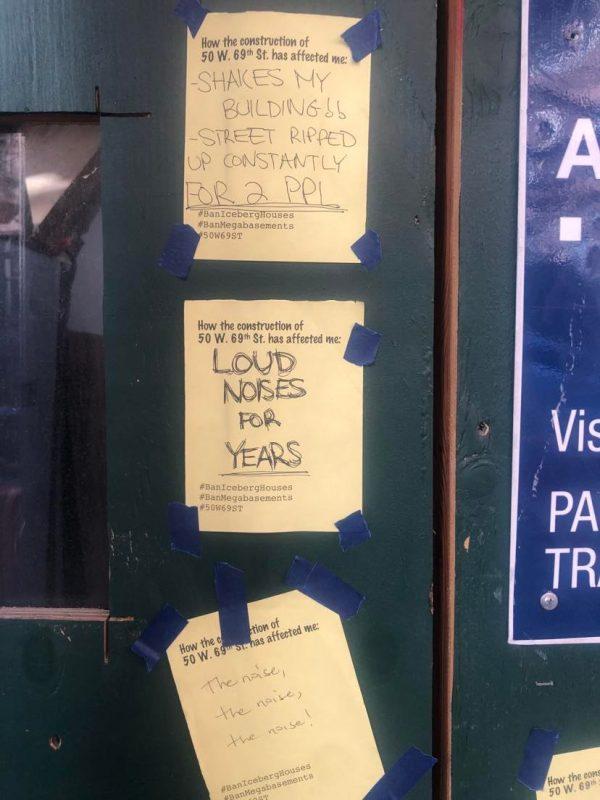 How the construction of
50 W. 69th St. has affected me:
-SHAKES MY
BUILDING!!
-STREET RIPPED
UP CONSTANTLY
FOR 2 PPL
#BanIcebergHouses
#BanMegabasements
#50W69ST
How the construction of
50 W. 69th St. has affected me:
LOUD
NOISES
FOR
YEARS
#BanIcebergHouses
#BanMegabasements
#50W69ST
How the c tion of
50 W. 69th St. has affected me:
The noise,
the noise,
the noise!
#BanIcebergHouses
#BanMegabasements
A
Vis
PA
TRA
How the cons
50 W. 69th